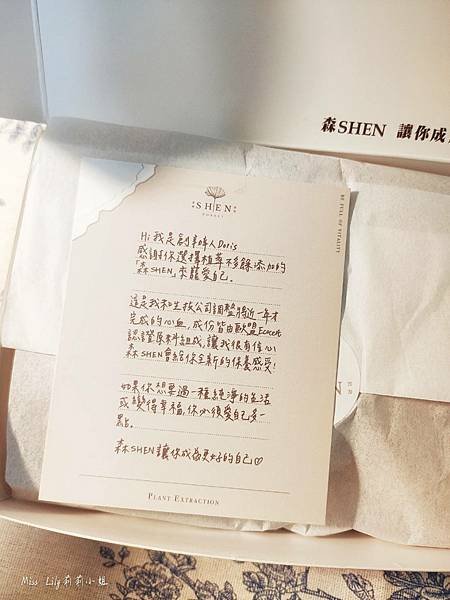 森SHEN 讓你成
:SHEN:
FOREST
BE FULL OF VITALITY
Hi 我是創辦人Doris
感謝你選擇植萃不多餘添加的
「森SHEN」來寵愛自己.
這是我和生技公司調整將近一年才
完成的心血,成份皆由歐盟Ecocert
認證原料組成,讓我很有信心
森SHEN會給你全新的保養感受!
如果你想要過一種純淨的生活
或變得幸福,你必須愛自己多一
點.
森SHEN讓你成為更好的自己♡
PLANT EXTRACTION
Miss Lily莉莉小姐